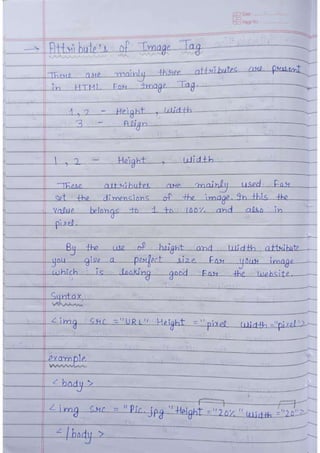 → Attribute's of Image Tag
There are mainly three attributes are present
in HTML For Image Tag.
1, 2 - Height , Width
3 - Align
1, 2 - Height , Width
These attributes are mainly used For
set the dimensions of the image. In this the
value belongs to 1 to 100% and also in
pixel.
By the use of height and width attribute
you give a perfect size For your image
which is looking good For the website.
Syntax
<img SRC ="URL" Height ="pixel width ="pixel">
example
<body>
<img SRC = "Pic.jpg "Height ="20%" width ="20">
</body>